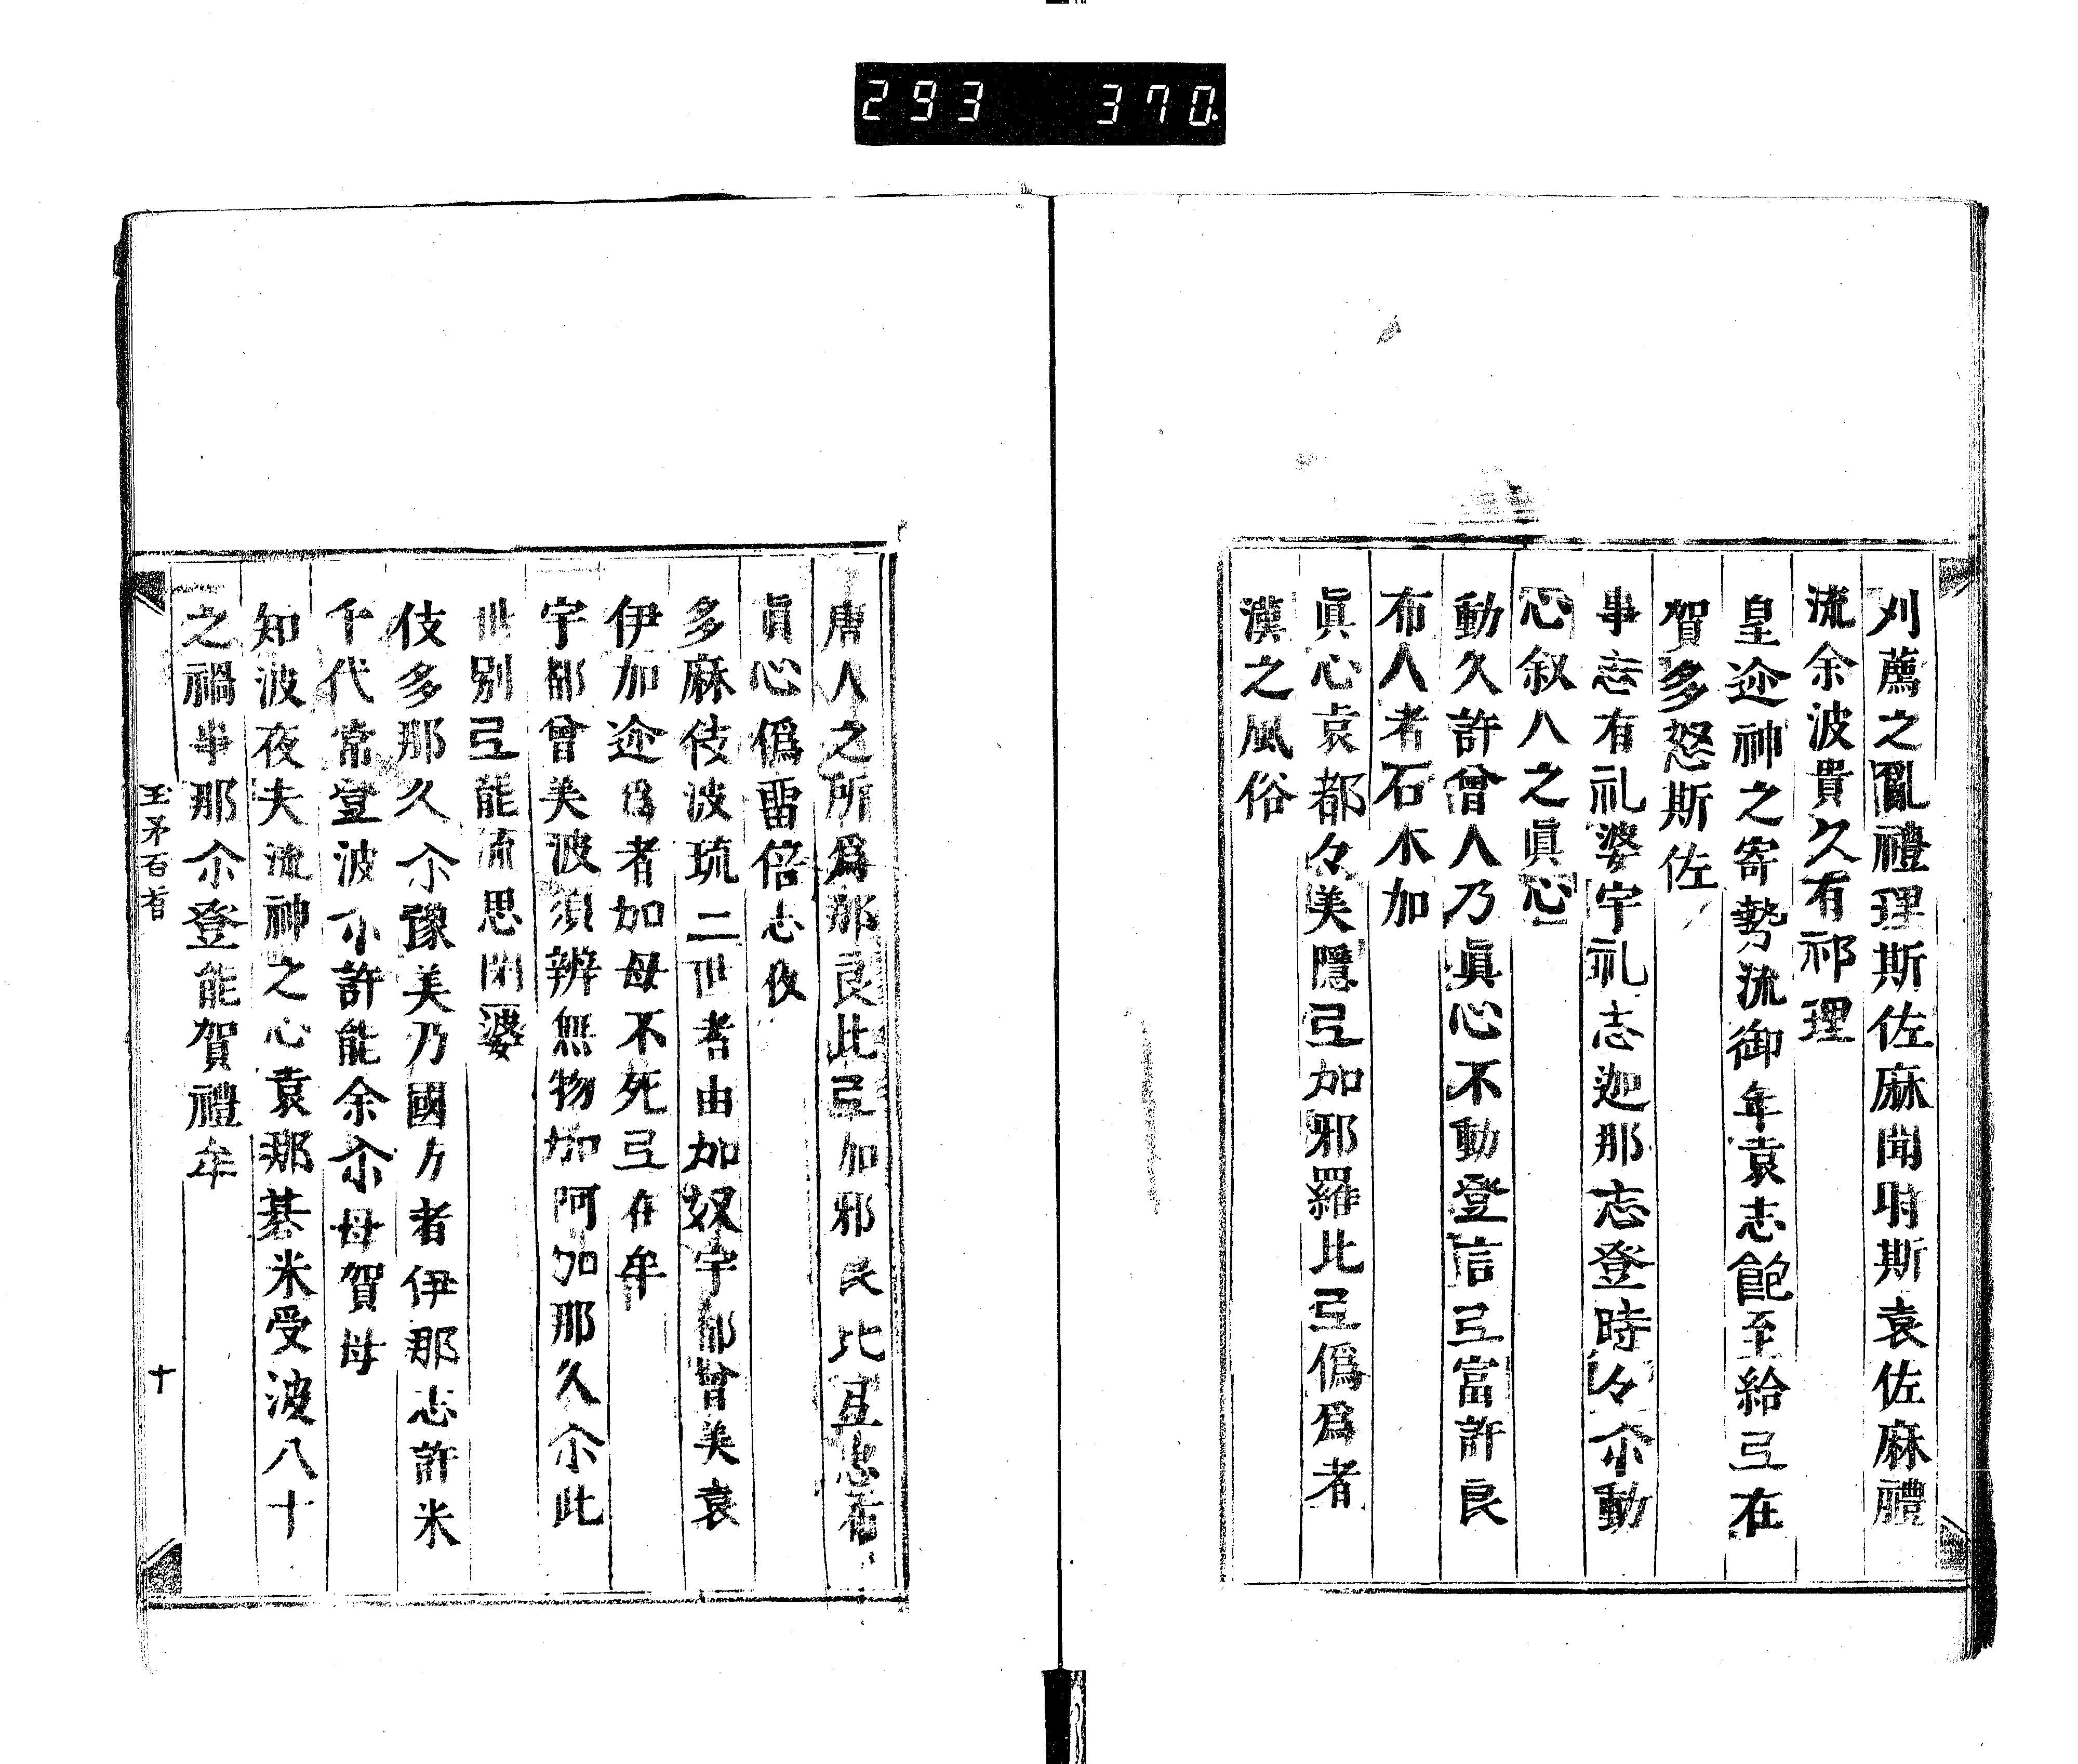 293 370
刈薦之亂禮理斯佐麻聞時斯袁佐麻禮
流余波貴久有祁理
皇迩神之寄勢流御年袁志飽至給弖在
賀多怒斯佐
事志有礼婆宇礼志迦那志登時々尒動
心叙人之眞心
動久許曾人乃眞心不動登言弖富許良
布人者石木加
眞心袁都々美隱弖加邪羅比弖僞爲者
漢之風俗
唐人之所爲那良比弖加邪良比互思布
眞心僞雷倍志夜
多麻伎波琉二世者由加奴宇都曾美袁
伊加迩爲者加母不死弖在牟
宇都曾美波須辨無物加阿加那久尒此
世別弖能流思閇婆
伎多那久尒豫美乃國方者伊那志許米
千代常登波尒許能余尒母賀母
知波夜夫流神之心袁那碁米受波八十
之禍事那尒登能賀禮牟
玉矛百首
十